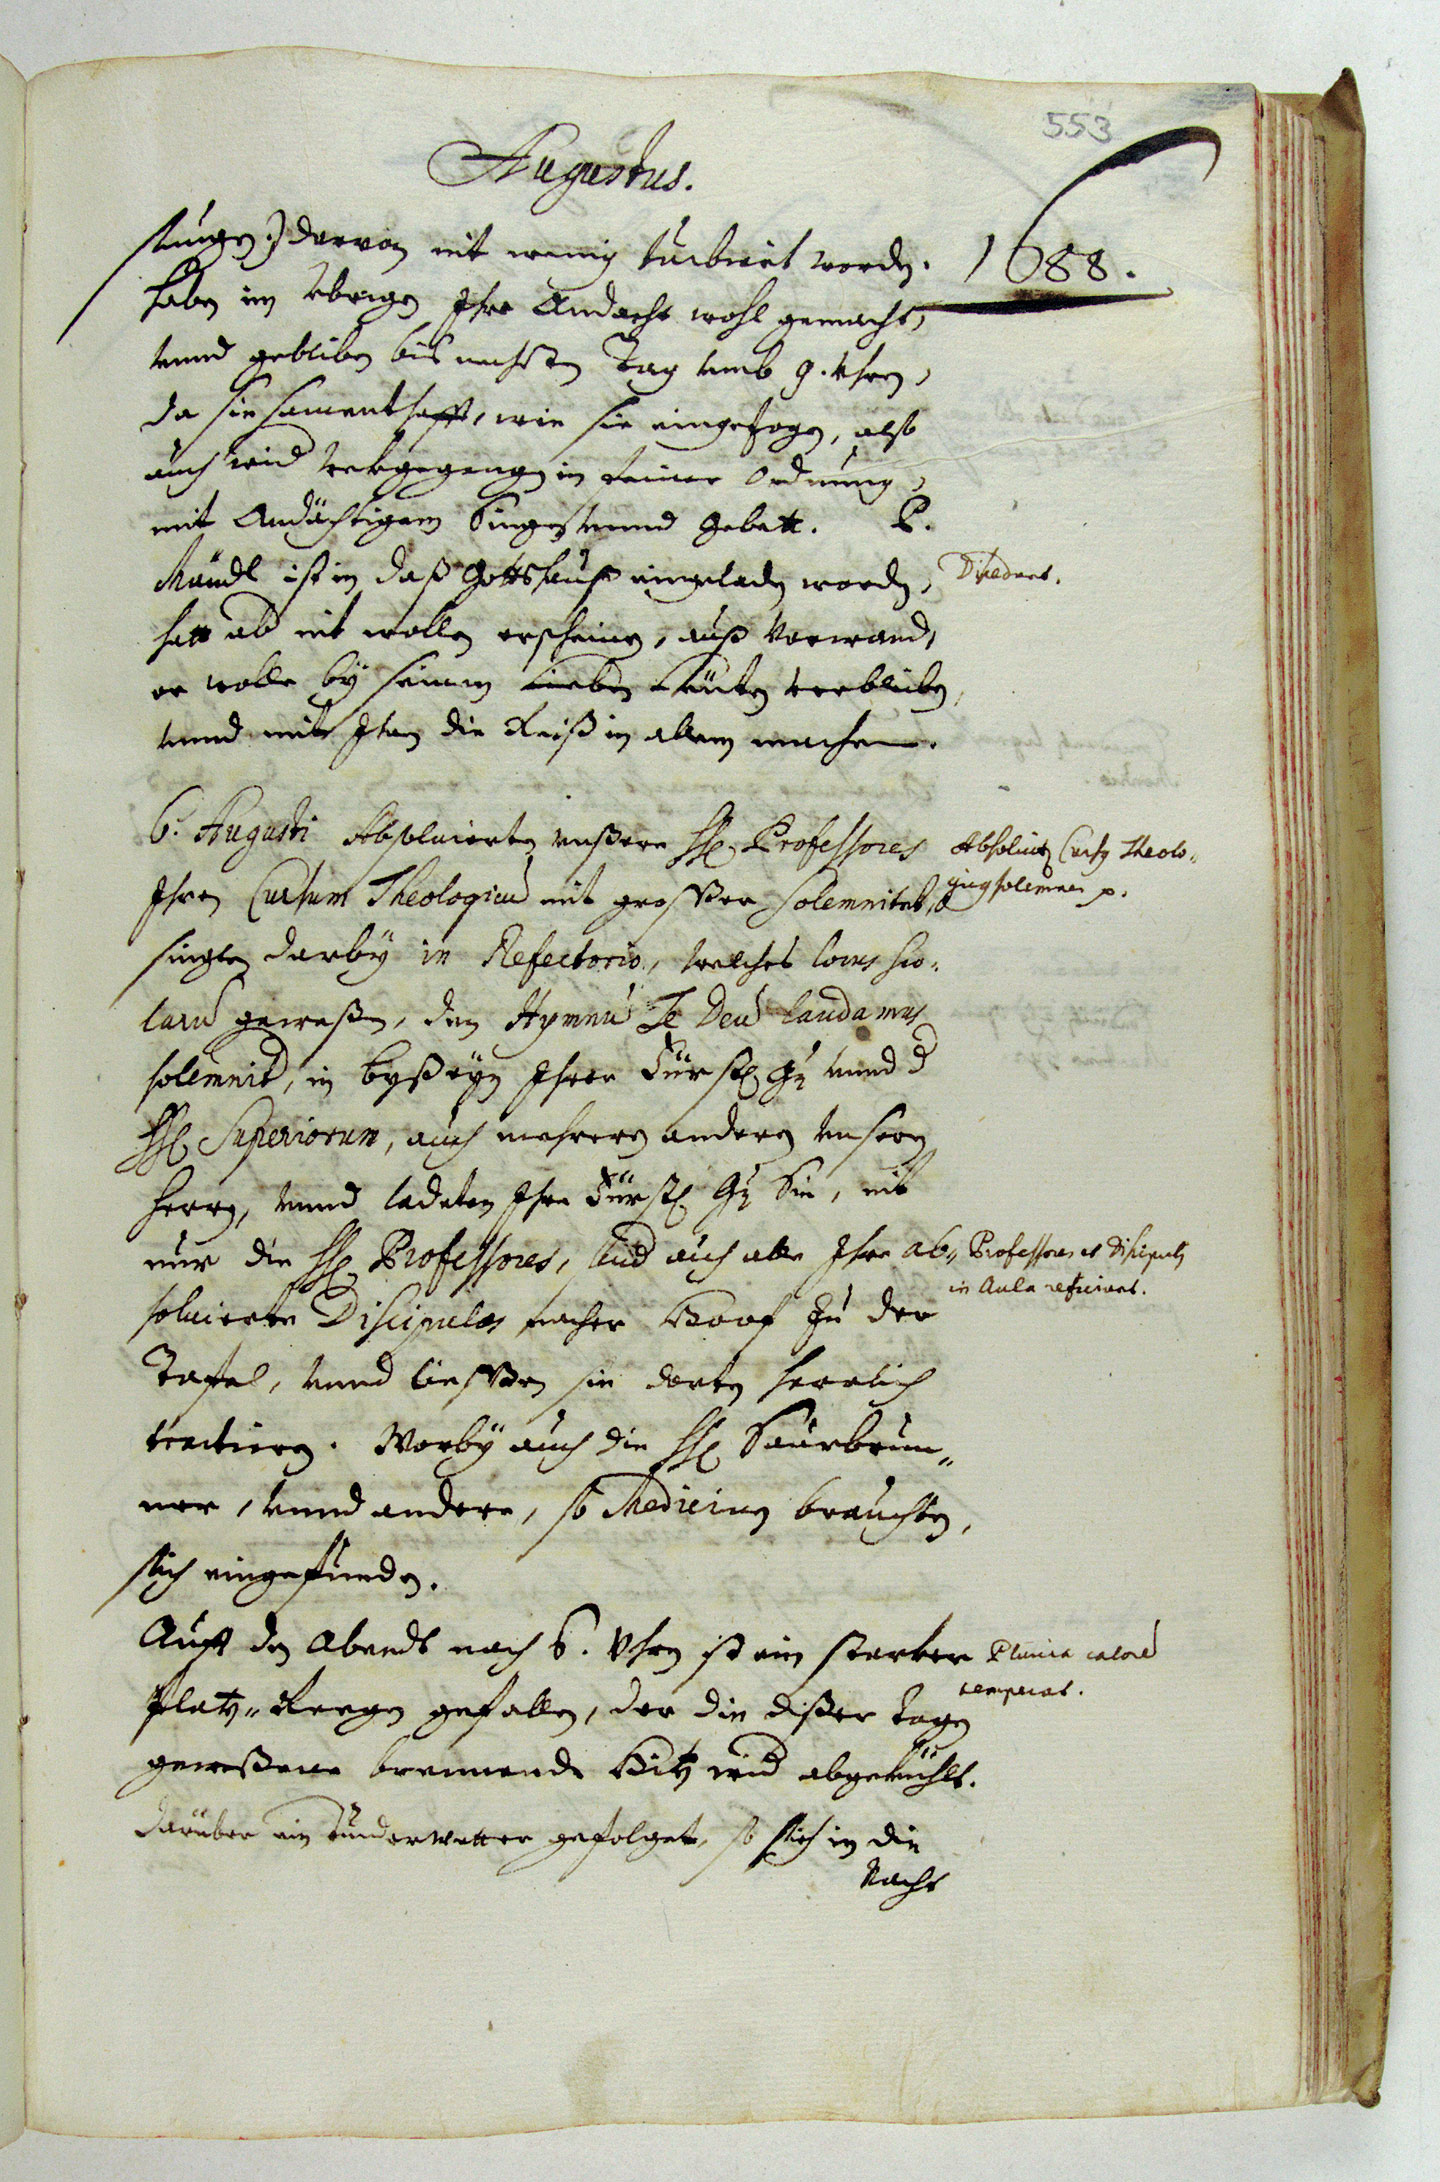 553
Augustus.
1688.
stungen.) darvon nit wenig turbiert worden.
haben im ubrigen Ihre Andacht wohl gemacht,
unnd gebliben bis nechsten Tag umb 9. Uhren,
da sie samenthafft, wie sie eingezogen, also
auch wid in feiner Ordnung,
mit Andächtigem Singen unnd Gebett. P.
Mändl ist in daß Gottshauß eingeladen worden,
hatt ab nit wollen erscheinen, auß Vorwand,
er wolle by seinen Lieben Leüten verbliben,
unnd mit Ihnen die Reiß in allem machen.
Discedunt.
6. Augusti Absolvierten unßere HH. Professores
Ihren Cursum Theologicu mit grosser Solemnitet,
singten darby in Refectorio, welches locus sco-
laru geweßen, den Hymnu Te Deu laudamus
solemnit, in byßeyn Ihrer Fürstl. Gn unnd d
HH. Superiorum, auch mehreren anderen unseren
Herren, unnd ladeten Ihre Fürstl. Gn Sie, nit
nur die HH. Professores, sond auch alle Ihre ab-
solvierte Discipulos nacher Hoof zu der
Tafel, unnd liessen sie dorten herrlich
tractieren. Worby auch die HH. Saurbrun-
ner, unnd andere, so Medicinen brauchten,
sich eingefunden.
Absolvit Cursus Theolo-
gicus solemnit p.
Professores et Discipuli
in Aula reficiunt.
Auff den Abendt nach 6. Uhren ist ein starker
Platz-Reegen gefallen, der die dißer tagen
geweßene brennende Hitz wid abgekühlt.
Darüber ein Dunderwetter gefolget, so sich in die
Nacht
Pluvia calore
temperat.